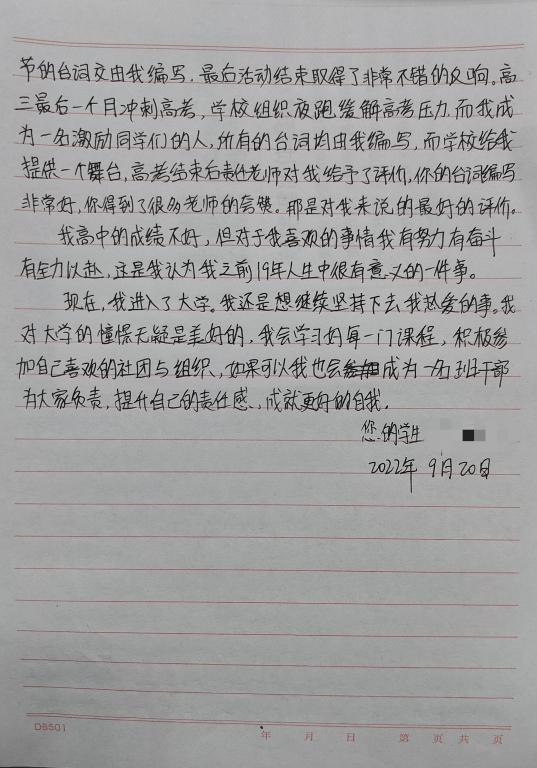 节的台词交由我编写，最后活动结束取得了非常不错的反响。高
三最后一个月冲刺高考，学校组织夜跑缓解高考压力，而我成
为一名激励同学们的人，所有的台词均由我编写，而学校给我
提供一个舞台，高考结束后责任老师对我给予了评价，你的台词编写
非常好，你得到了很多老师的夸赞。那是对我来说的最好的评价。
我高中的成绩不好，但对于我喜欢的事情我有努力有奋斗
有全力以赴，这是我认为我之前19年人生中很有意义的一件事。
现在，我进入了大学。我还是想继续坚持下去我热爱的事。我
对大学的憧憬无疑是美好的，我会学习好每一门课程，积极参
加自己喜欢的社团与组织，如果可以我也会成为一名班干部
为大家负责，提升自己的责任感，成就更好的自我。
您的学生
2022年 9月20日
DB501
年 月 日 第 页 共 页